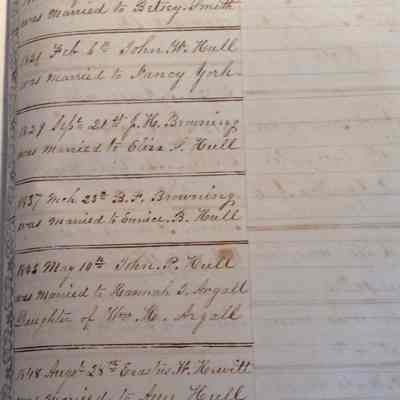 was married to Betsey Smith
Feb 6th John W. Hull
was married to Nancy York
1829 Sept. J. H. Browning
was married to Eliza S. Hull
1837 Mch. 23d B. F. Browning
was married to Eunice B. Hull
May 10th John P. Hull
was married to Hannah J. Argall
Daughter of Wm H. Argall
1848 Augst. 28th Erastus W. Hewitt
was married to Ann Hull